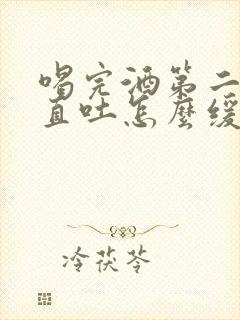 喝完酒第二
直吐怎麼緩
冷茯苓